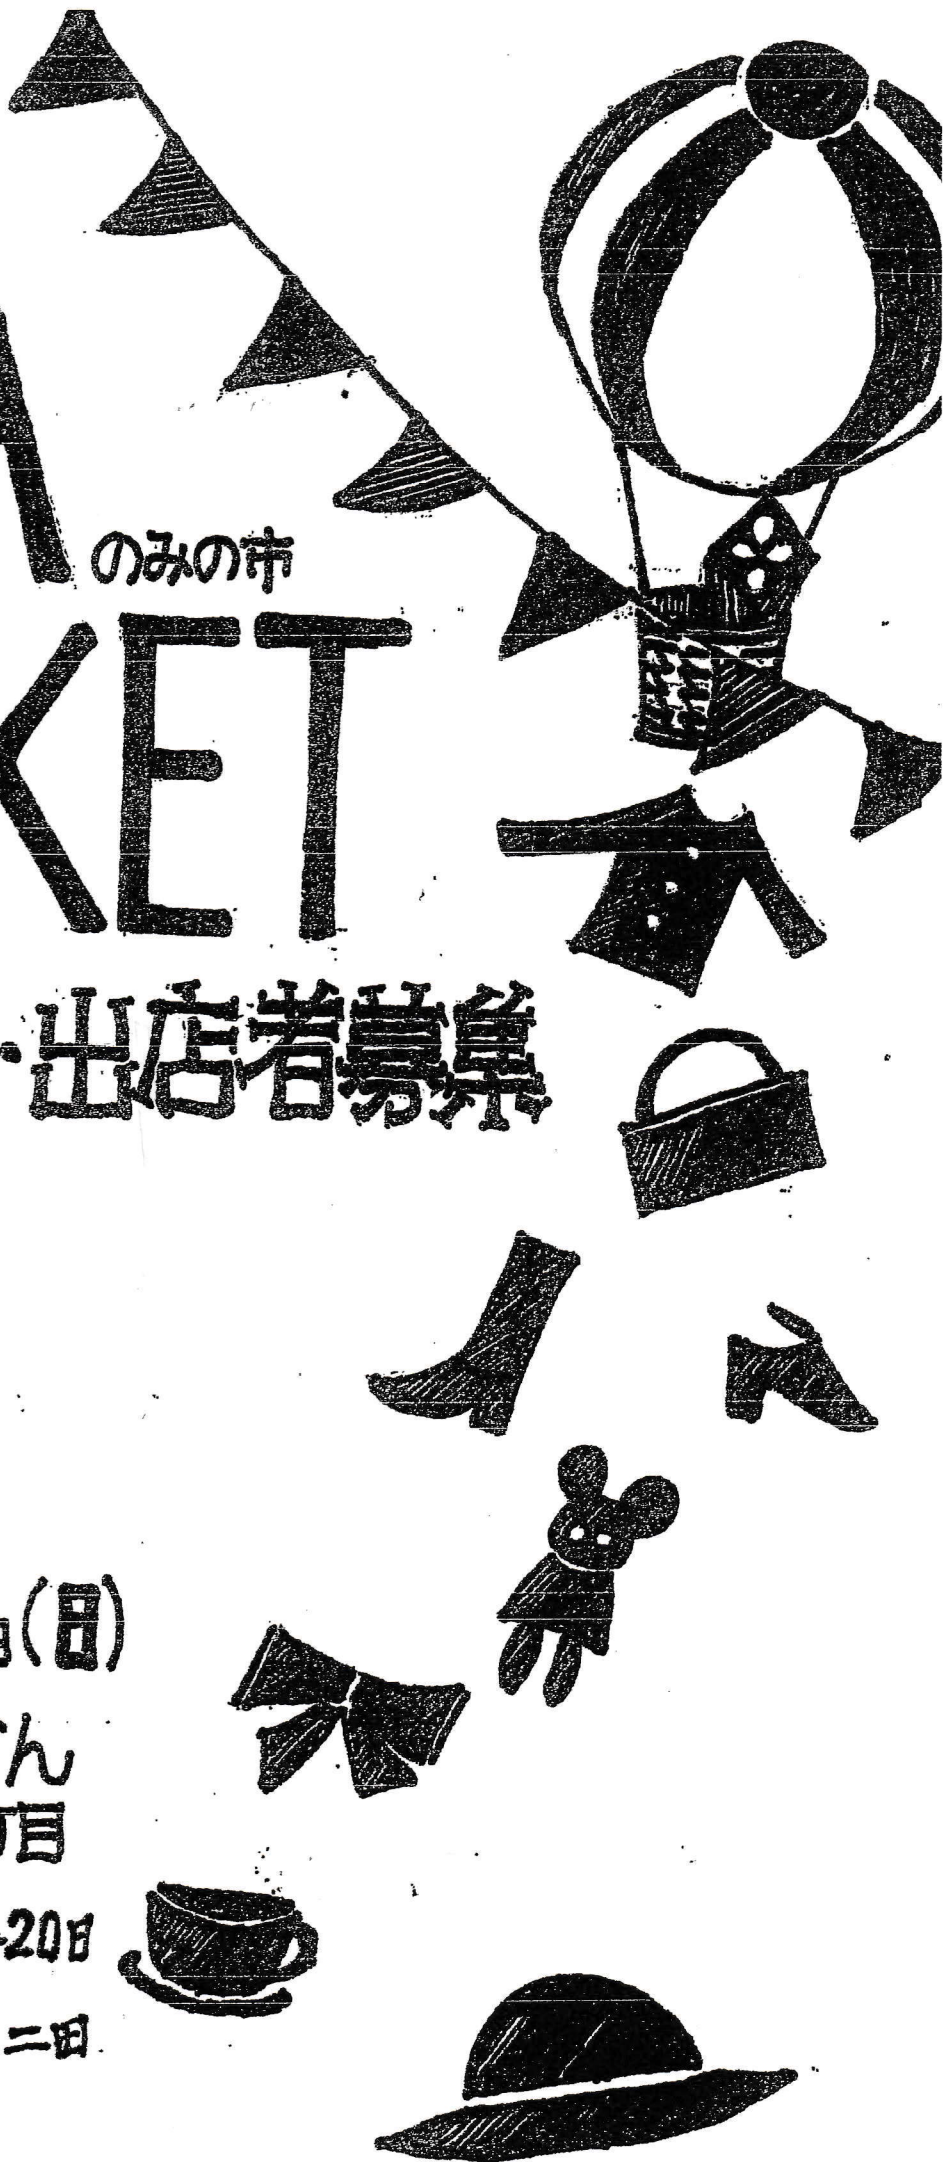 のみの市
KET
・出店者募集
(日)
ん
丁目
20日
二田